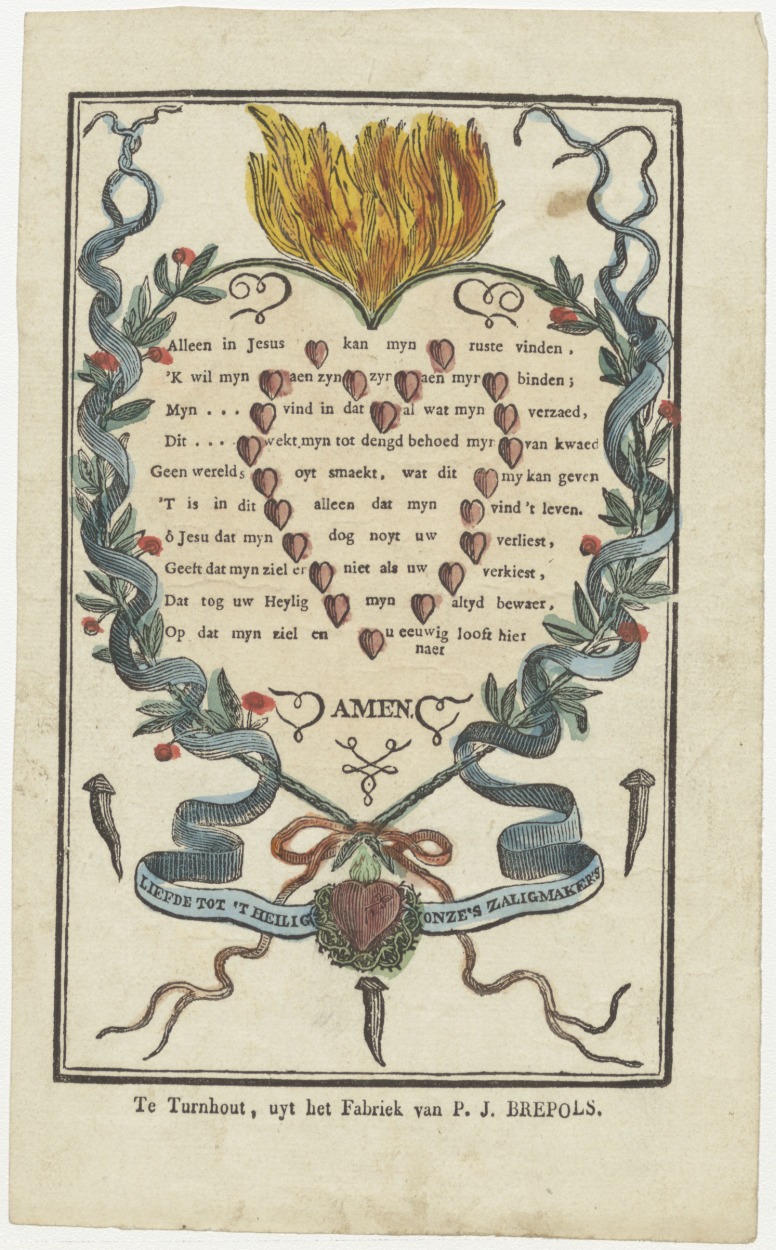 Alleen in Jesus kan myn ruste vinden,
'K wil myn aen zyn zyn aen myn binden;
Myn . . . vind in dat al wat myn verzaed,
Dit . . . . wekt myn tot deugd behoed myn van kwaed
Geen werelds oyt smaekt, wat dit my kan geven
'T is in dit alleen dat myn vind 't leven.
ô Jesu dat myn dog noyt uw verliest,
Geeft dat myn ziel en niet als uw verkiest,
Dat tog uw Heylig myn altyd bewaer,
Op dat myn ziel en u eeuwig looft hier
naer
AMEN.
LIEFDE TOT 'T HEILIG ONZE'S ZALIGMAKERS
Te Turnhout, uyt het Fabriek van P. J. BREPOLS.